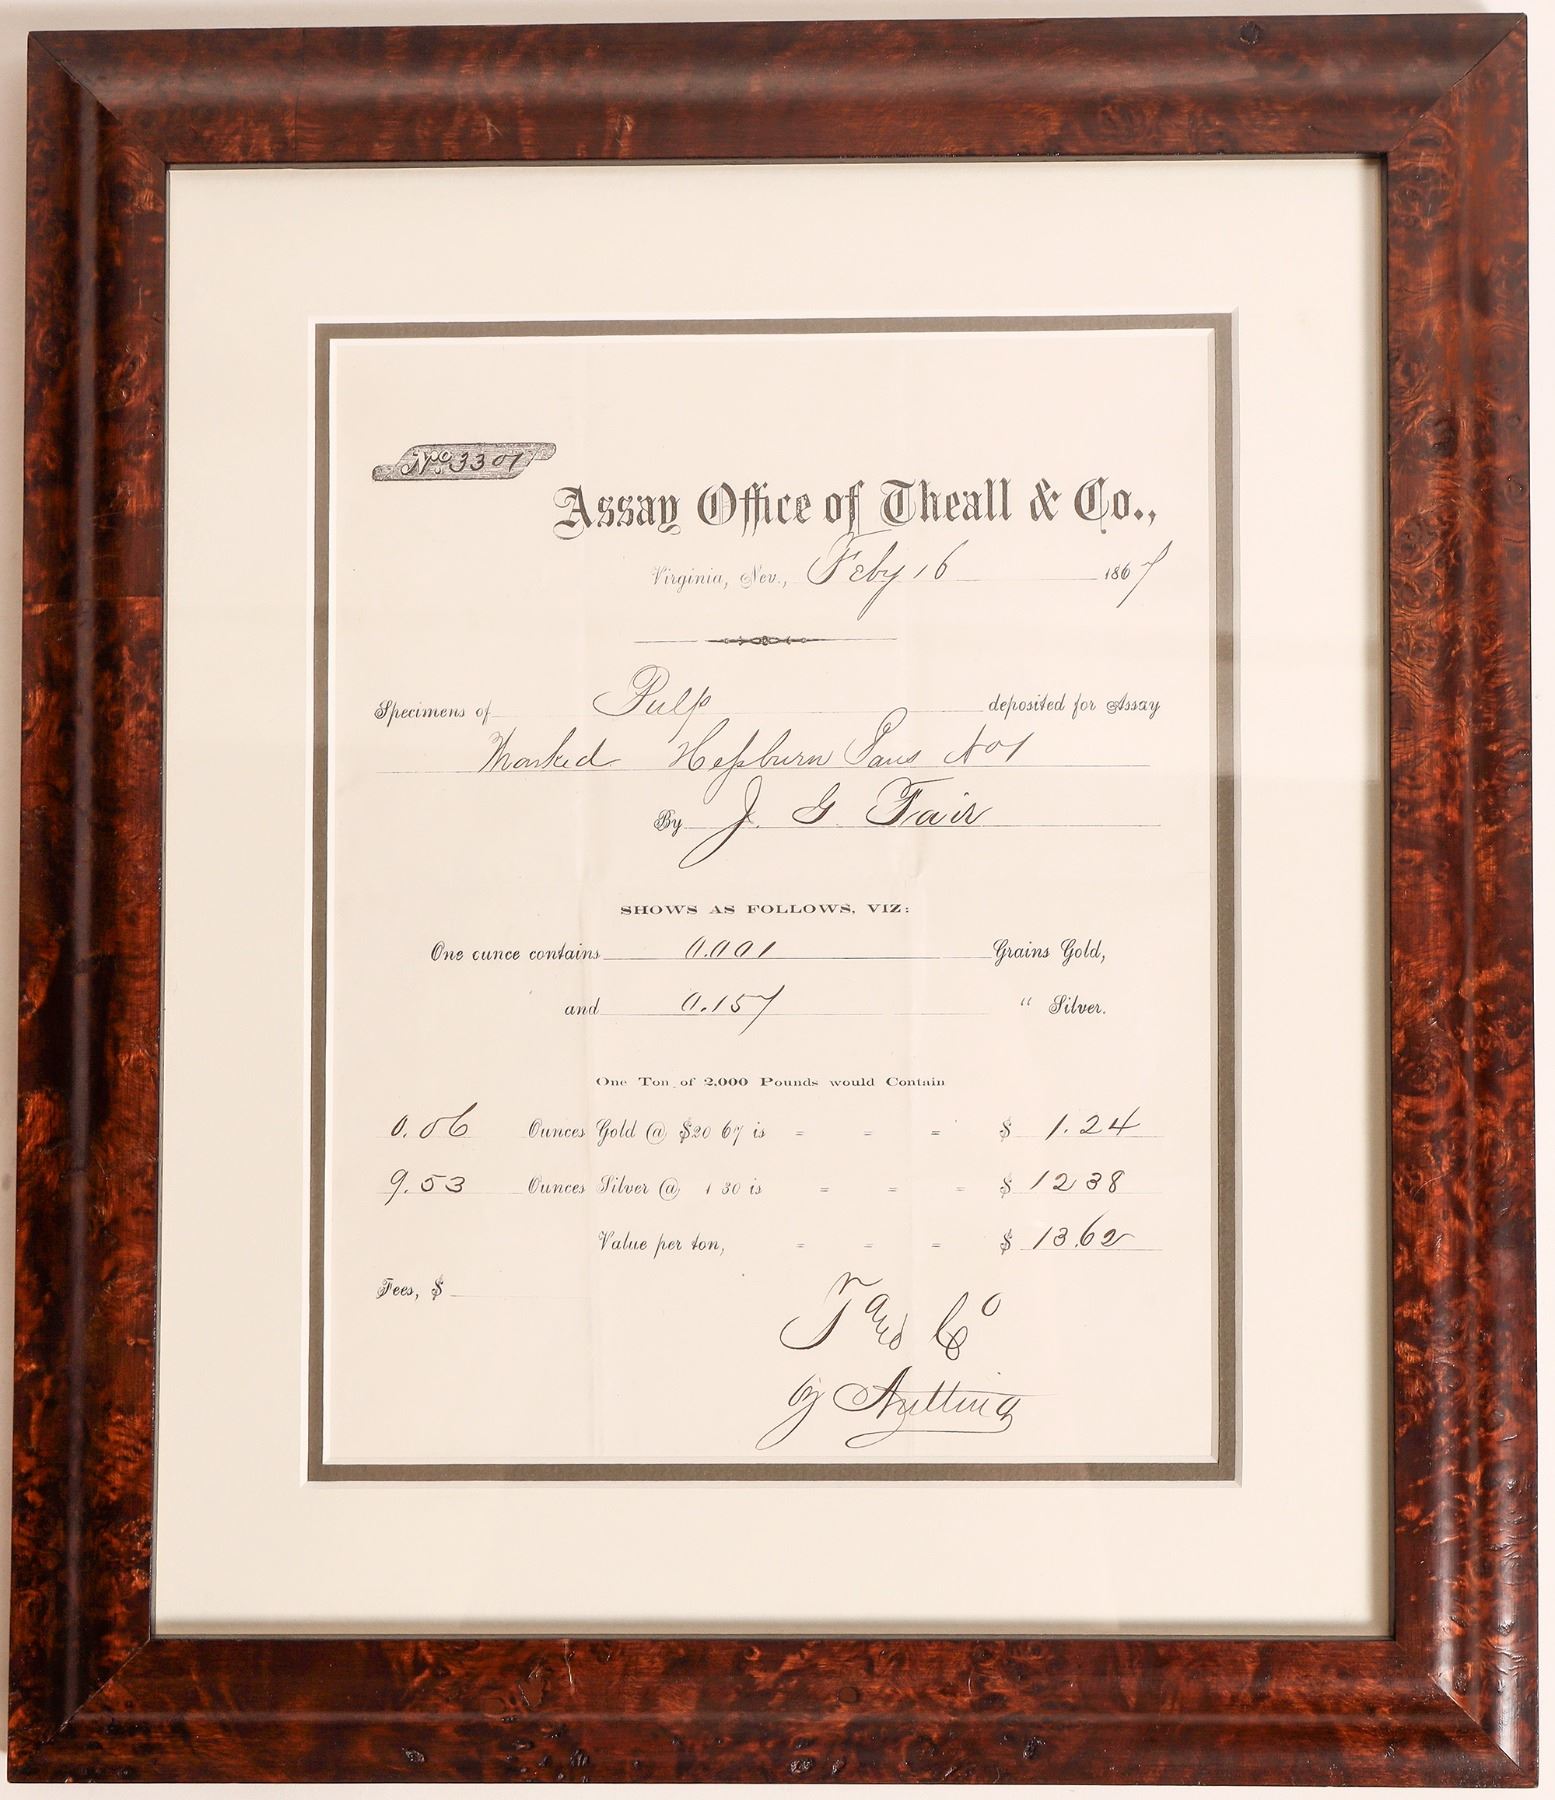 No. 3307
Assay Office of Theall & Co.,
Virginia, Nev., Feby 16 1867
Specimens of Pulp deposited for Assay
Marked Hepburn Pans No 1
By J. G. Fair
SHOWS AS FOLLOWS, VIZ:
One ounce contains 0.001 Grains Gold,
and 0.157 " Silver.
One Ton of 2,000 Pounds would Contain
0.06 Ounces Gold @ $20 67 is = = = $ 1.24
9.53 Ounces Silver @ 1 30 is = = = $ 12 38
Value per ton, = = = $ 13.62
Fees, $
T and Co
by